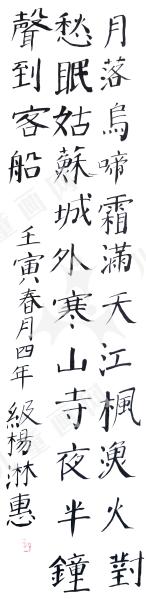 月落烏啼霜滿天江楓漁火對
愁眠姑蘇城外寒山寺夜半鐘
聲到客船 壬寅春月四年級楊淋惠